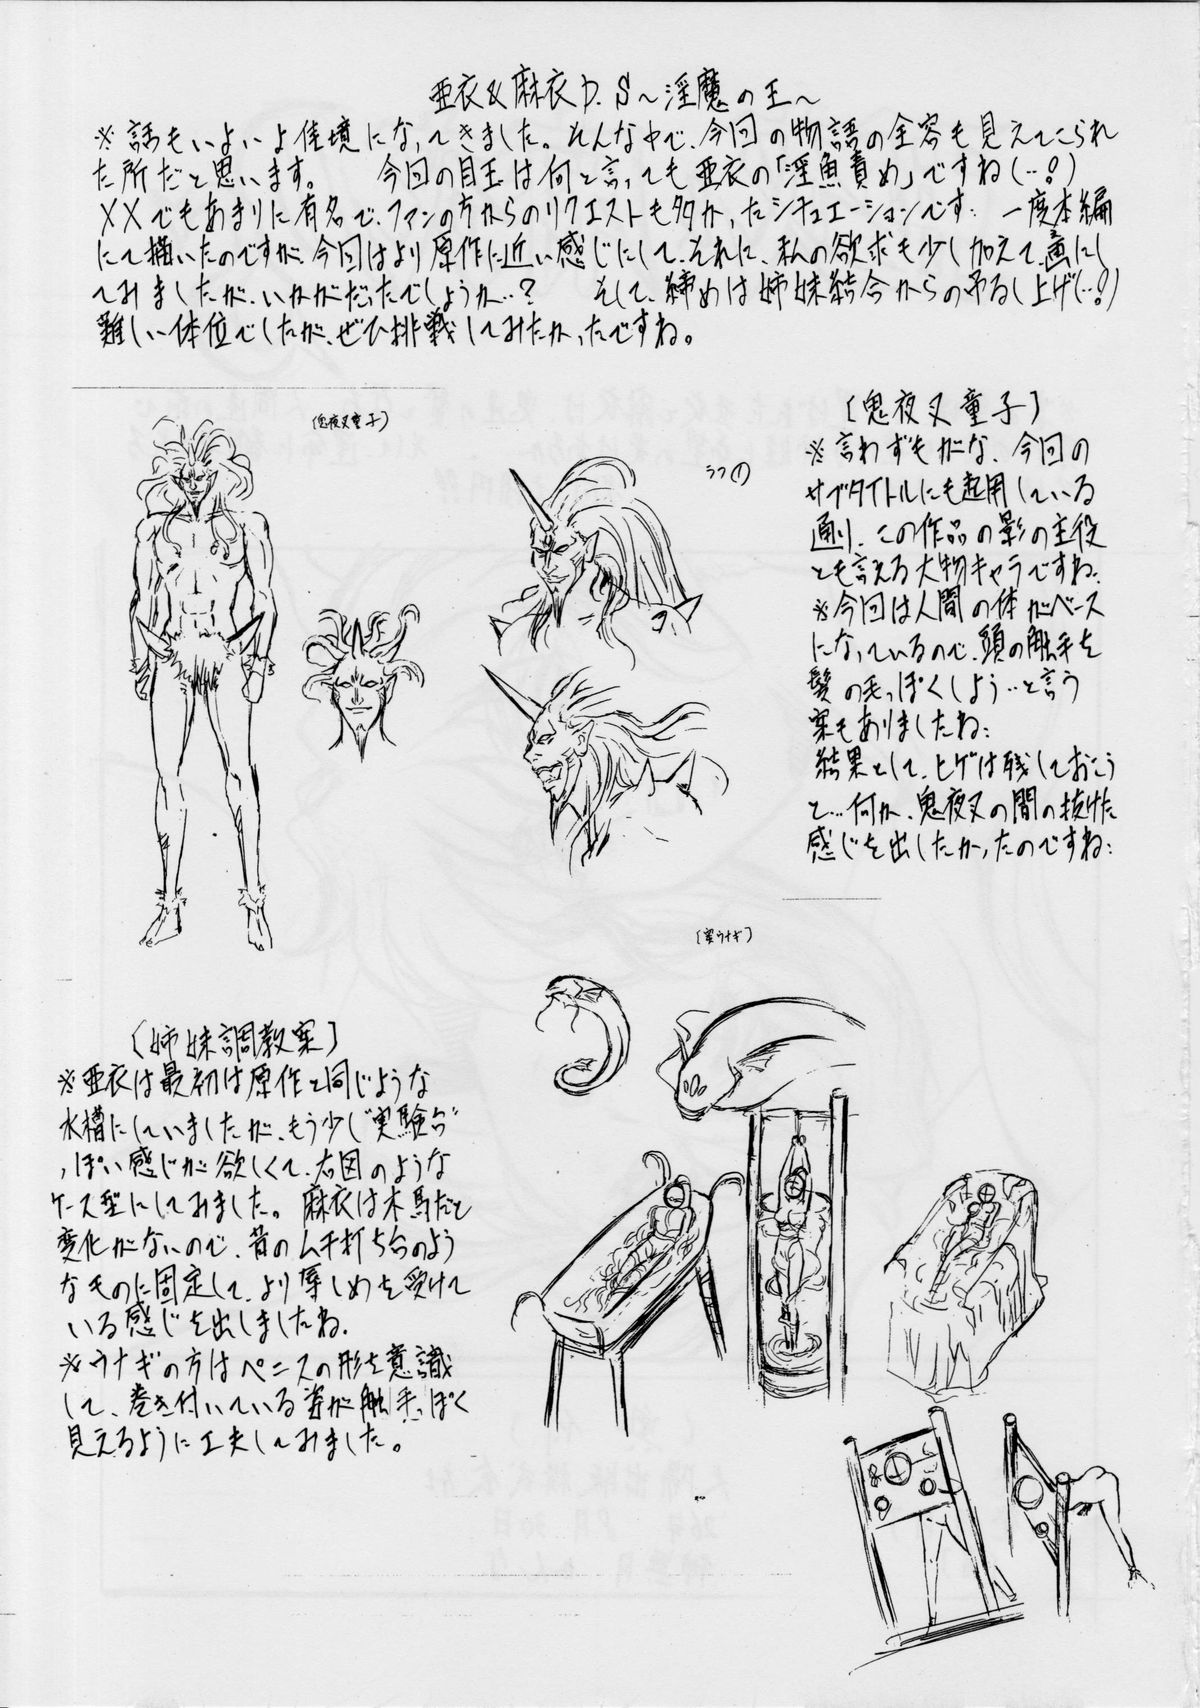 亜衣&麻衣D.S～淫魔の王～
※話もいよいよ佳境になってきました。そんな中で、今回の物語の全容も見えてこられ
た所だと思います。 今回の目玉は何と言っても亜衣の「淫魚責め」ですね(…!)
XXでもあまりに有名で、ファンの方からのリクエストも多かったシチュエーションです… 一度本編
にて描いたのですが、今回はより原作に近い感じにして、それに、私の欲求も少し加えて、画にし
てみましたが、いかがだったでしょうか…? そして、締めは姉妹結合からの吊るし上げ(…!)
難しい体位でしたが、ぜひ挑戦してみたかったですね。
(鬼夜叉童子)
ラフ①
〔鬼夜叉童子〕
※言わずもがな、今回の
サブタイトルにも起用している
通り、この作品の影の主役
とも言える大物キャラですね…
※今回は人間の体がベース
になっているので、頭の触手を
髪の毛っぽくしよう…と言う
案もありましたね…
結果として、ヒゲは残しておこう
と…何か、鬼夜叉の間の抜けた
感じを出したかったのですね…
ウナギ〕
〔姉妹調教案〕
※亜衣は最初は原作と同じような
水槽にしていましたが、もう少し"実験台"
っぽい感じが欲しくて、右図のような
ケース型にしてみました。麻衣は木馬だと
変化がないので、昔のムチ打ち台のよう
なものに固定して、より辱しめを受けて
いる感じを出しましたね…
※ウナギの方はペニスの形を意識
して、巻き付いている姿が触手っぽく
見えるように工夫してみました。